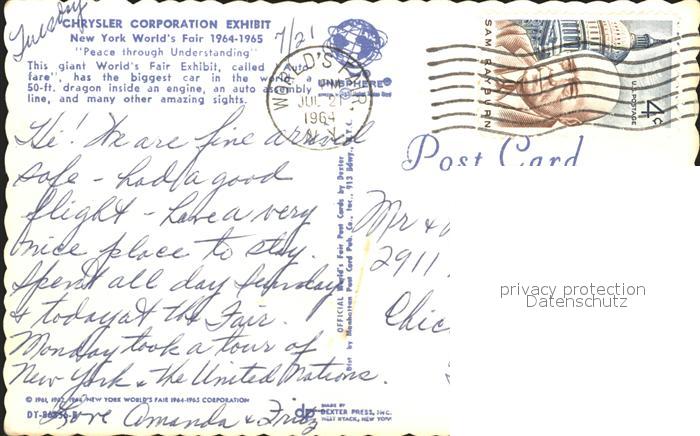 Tuesday
7/21
CHRYSLER CORPORATION EXHIBIT
New York World's Fair 1964-1965
"Peace through Understanding"
This giant World's Fair Exhibit, called "Auto
fare", has the biggest car in the world, a
50-ft. dragon inside an engine, an auto assembly
line, and many other amazing sights.
UNISPHERE®
WORLD'S FAIR,
PM
JUL 21
1964
N.Y.
SAM RAYBURN
U.S. POSTAGE
4¢
Post Card
Hi! We are fine arrived
safe - had a good
flight - have a very
nice place to stay.
Spent all day Sunday
& today at the Fair.
Monday took a tour of
New York & the United Nations.
Love Amanda & Fritz
OFFICIAL World's Fair Post Cards by Dexter
Dist by Manhattan Post Card Pub. Co., Inc., 913 Bdwy., N.Y.C.
Mr &
2911
Chic
privacy protection
Datenschutz
© 1961, 1962, 1964 NEW YORK WORLD'S FAIR 1964-1965 CORPORATION
dp
MADE BY
DEXTER PRESS, INC.
WEST NYACK, NEW YORK